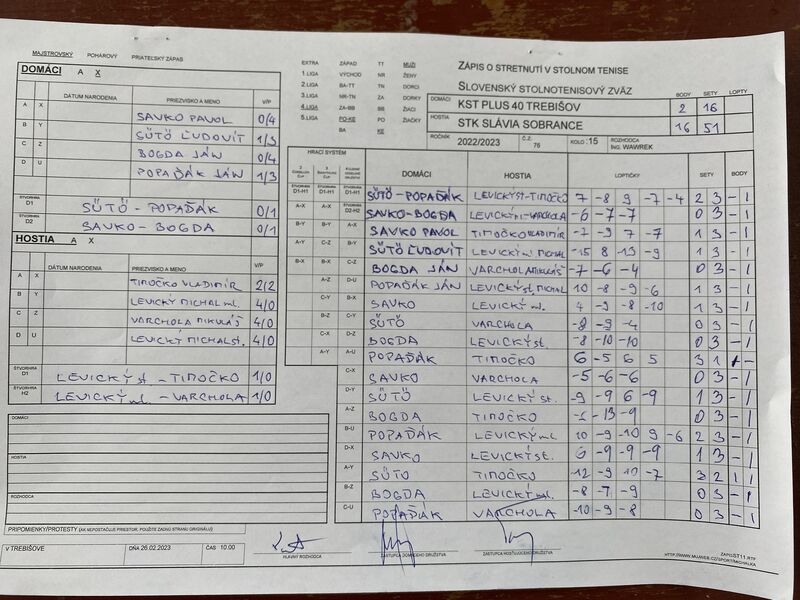 MAJSTROVSKÝ POHÁROVÝ PRIATEĽSKÝ ZÁPAS
DOMÁCI A X
DÁTUM NARODENIA PRIEZVISKO A MENO V/P
A X SAVKO PAVOL 0/4
B Y SŰTŐ ĽUDOVÍT 1/3
C Z BOGDA JÁN 0/4
D U POPAĎÁK JÁN 1/3
ŠTVORHRA D1 SŰTŐ - POPAĎÁK 0/1
ŠTVORHRA D2 SAVKO - BOGDA 0/1
HOSTIA A X
DÁTUM NARODENIA PRIEZVISKO A MENO V/P
A X TIMOČKO VLADIMÍR 2/2
B Y LEVICKÝ MICHAL ml. 4/0
C Z VARCHOLA MIKULÁŠ 4/0
D U LEVICKÝ MICHAL st. 4/0
ŠTVORHRA H1 LEVICKÝ st - TIMOČKO 1/0
ŠTVORHRA H2 LEVICKÝ ml. - VARCHOLA 1/0
DOMÁCI
HOSTIA
ROZHODCA
PRIPOMIENKY/PROTESTY (AK NEPOSTAČUJE PRIESTOR, POUŽITE ZADNÚ STRANU ORIGINÁLU)
V TREBIŠOVE DŇA 26.02.2023 ČAS 10.00
HLAVNÝ ROZHODCA ZÁSTUPCA DOMÁCEHO DRUŽSTVA ZÁSTUPCA HOSŤUJÚCEHO DRUŽSTVA
EXTRA ZÁPAD TT MUŽI
1. LIGA VÝCHOD NR ŽENY
2. LIGA BA-TT TN DORCI
3. LIGA NR-TN ZA DORKY
4. LIGA ZA-BB BB ŽIACI
5. LIGA PO-KE PO ŽIAČKY
BA KE
ZÁPIS O STRETNUTÍ V STOLNOM TENISE
SLOVENSKÝ STOLNOTENISOVÝ ZVÄZ
BODY SETY LOPTY
DOMÁCI KST PLUS 40 TREBIŠOV 2 16
HOSTIA STK SLÁVIA SOBRANCE 16 51
ROČNÍK 2022/2023 Č.Z. 76 KOLO :15 ROZHODCA ING. WAWREK
HRACÍ SYSTÉM
DOMÁCI HOSTIA LOPTIČKY SETY BODY
ŠTVORHRA D1-H1 ŠTVORHRA D1-H1 ŠTVORHRA D1-H1 SŰTŐ-POPAĎÁK LEVICKÝ st-TIMOČKO 7 -8 9 -7 -4 2 3 - 1
A-X A-X ŠTVORHRA D2-H2 SAVKO-BOGDA LEVICKÝ ml-VARCHOLA -6 -7 -7 0 3 - 1
B-Y B-Y A-X SAVKO PAVOL TIMOČKO VLADIMÍR -7 -9 7 -7 1 3 - 1
A-Y C-Z B-Y SŰTŐ ĽUDOVÍT LEVICKÝ ml MICHAL -15 8 -13 -9 1 3 - 1
B-X B-X C-Z BOGDA JÁN VARCHOLA MIKULÁŠ -7 -6 -4 0 3 - 1
A-Z D-U POPAĎÁK JÁN LEVICKÝ st MICHAL 10 -8 -9 -6 1 3 - 1
C-Y B-X SAVKO LEVICKÝ ml. 4 -9 -8 -10 1 3 - 1
B-Z C-Y SŰTŐ VARCHOLA -8 -9 -4 0 3 - 1
C-X D-Z BOGDA LEVICKÝ st. -8 -10 -10 0 3 - 1
A-Y A-U POPAĎÁK TIMOČKO 6 -5 6 5 3 1 1 -
C-X SAVKO VARCHOLA -5 -6 -6 0 3 - 1
D-Y SŰTŐ LEVICKÝ st. -9 -9 6 -9 1 3 - 1
A-Z BOGDA TIMOČKO -6 -13 -9 0 3 - 1
B-U POPAĎÁK LEVICKÝ ml 10 -9 -10 9 -6 2 3 - 1
D-X SAVKO LEVICKÝ st. 6 -9 -9 -9 1 3 - 1
A-Y SŰTŐ TIMOČKO
B-Z BOGDA LEVICKÝ ml. -8 -7 -9 0 3 - 1
C-U POPAĎÁK VARCHOLA -10 -9 -8 0 3 - 1
ZAPISST11.RTF
HTTP://WWW.MUJWEB.CZ/SPORT/MICHALKA